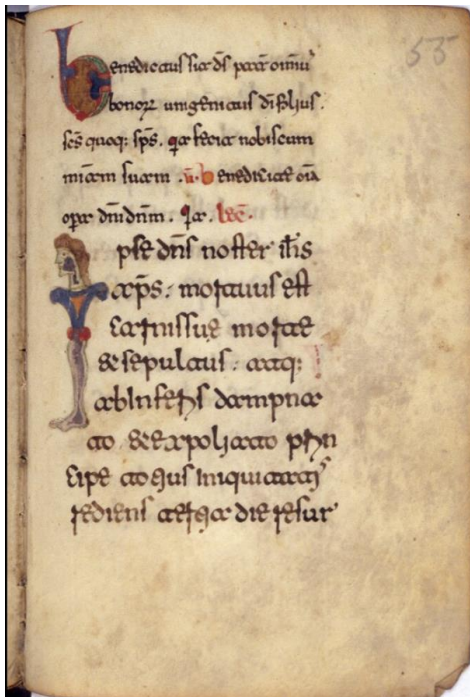 55
benedictus sit ds pater omniu
bonorz unigenitus di filius.
scs quoq: sps. qa fecit nobiscum
miam suam. v. benedicite oia
opera dni dnm. qa. lec.
Ipse dns noster ihs
xps: mortuus est
et
de sepultus: atq:
ab inferis dampna
to deexpoliato prin
cipe
rediens tertia die resur